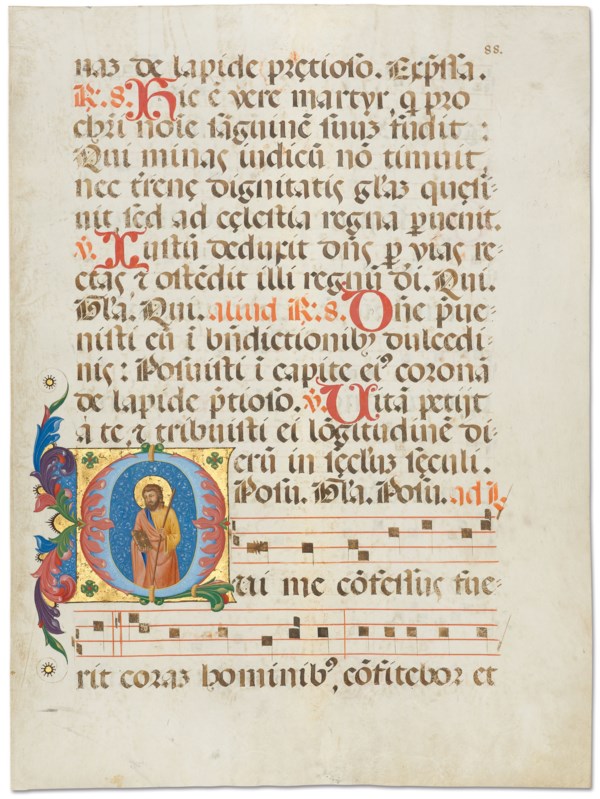 88.
naz de lapide pręcioso. Exp̄sta.
R. 8. Hic ē vere martyr, q̄ pro
chri noīe sāguinē suuz fūdit :
Qui minas iudicū nō timuit,
nec t̄renę dignitatis glaz quęsi-
uit sed ad cęlestia regna puenit.
v. Iustū deduxit dn̄s p vias re-
ctas, ⁊ ostēdit illi regnū dī. Qui.
Gl̄a. Qui. aliud R. 8. Dn̄e p̄ue-
nisti eū ī bn̄dictionibꝰ dulcedi-
nis : Posuisti ī capite eiꝰ coronā
de lapide p̄tioso. v. Uitā petijt
a te, ⁊ tribuisti ei lōgitudinē di-
erū in sęcluz sęculi.
Posu. Gl̄a. Posu. ad
Qui me cōfessus fue-
rit coraz hominibꝰ, cōfitebor et